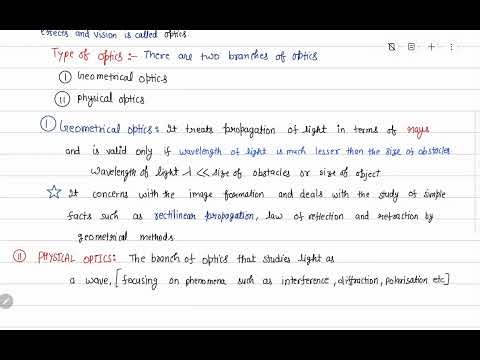 effects and vision is called optics
Type of optics:- There are two branches of optics
I Geometrical optics
II physical optics
I Geometrical optics: It treats propagation of light in terms of rays
and is valid only if wavelength of light is much lesser than the size of obstacles
Wavelength of light λ << size of obstacles or size of object
It concerns with the image formation and deals with the study of simple
facts such as rectilinear propagation, law of reflection and refraction by
geometrical methods
II PHYSICAL OPTICS: The branch of optics that studies light as
a wave, [focusing on phenomena such as interference, diffraction, polarisation etc]